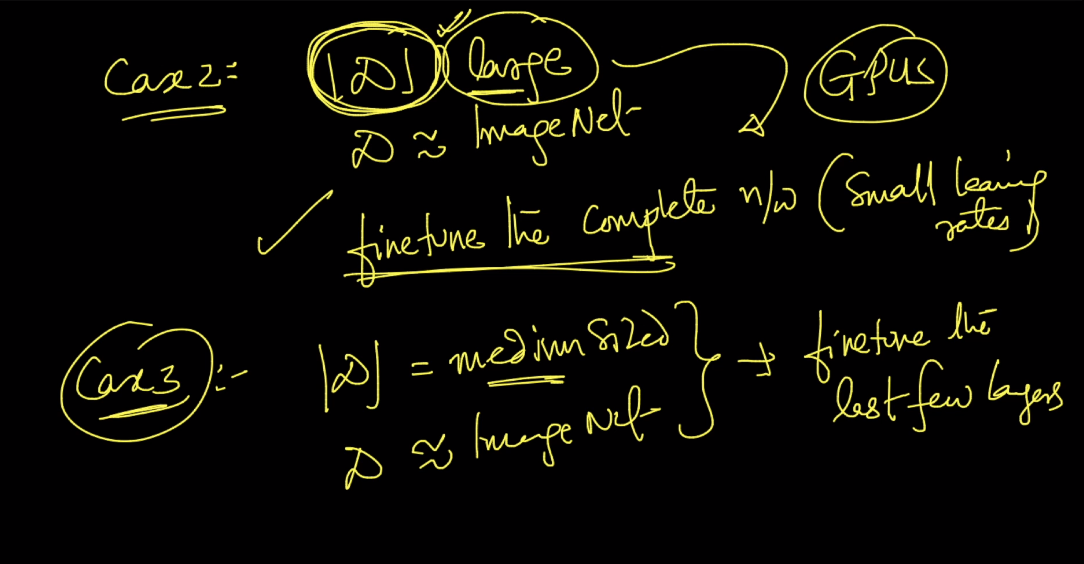 Case 2:
|D| large
GPUs
D ≈ ImageNet
finetune the complete n/w (small learning rates)
Case 3:-
|D| = medium sized
D ≈ ImageNet
→ finetune the
last few layers